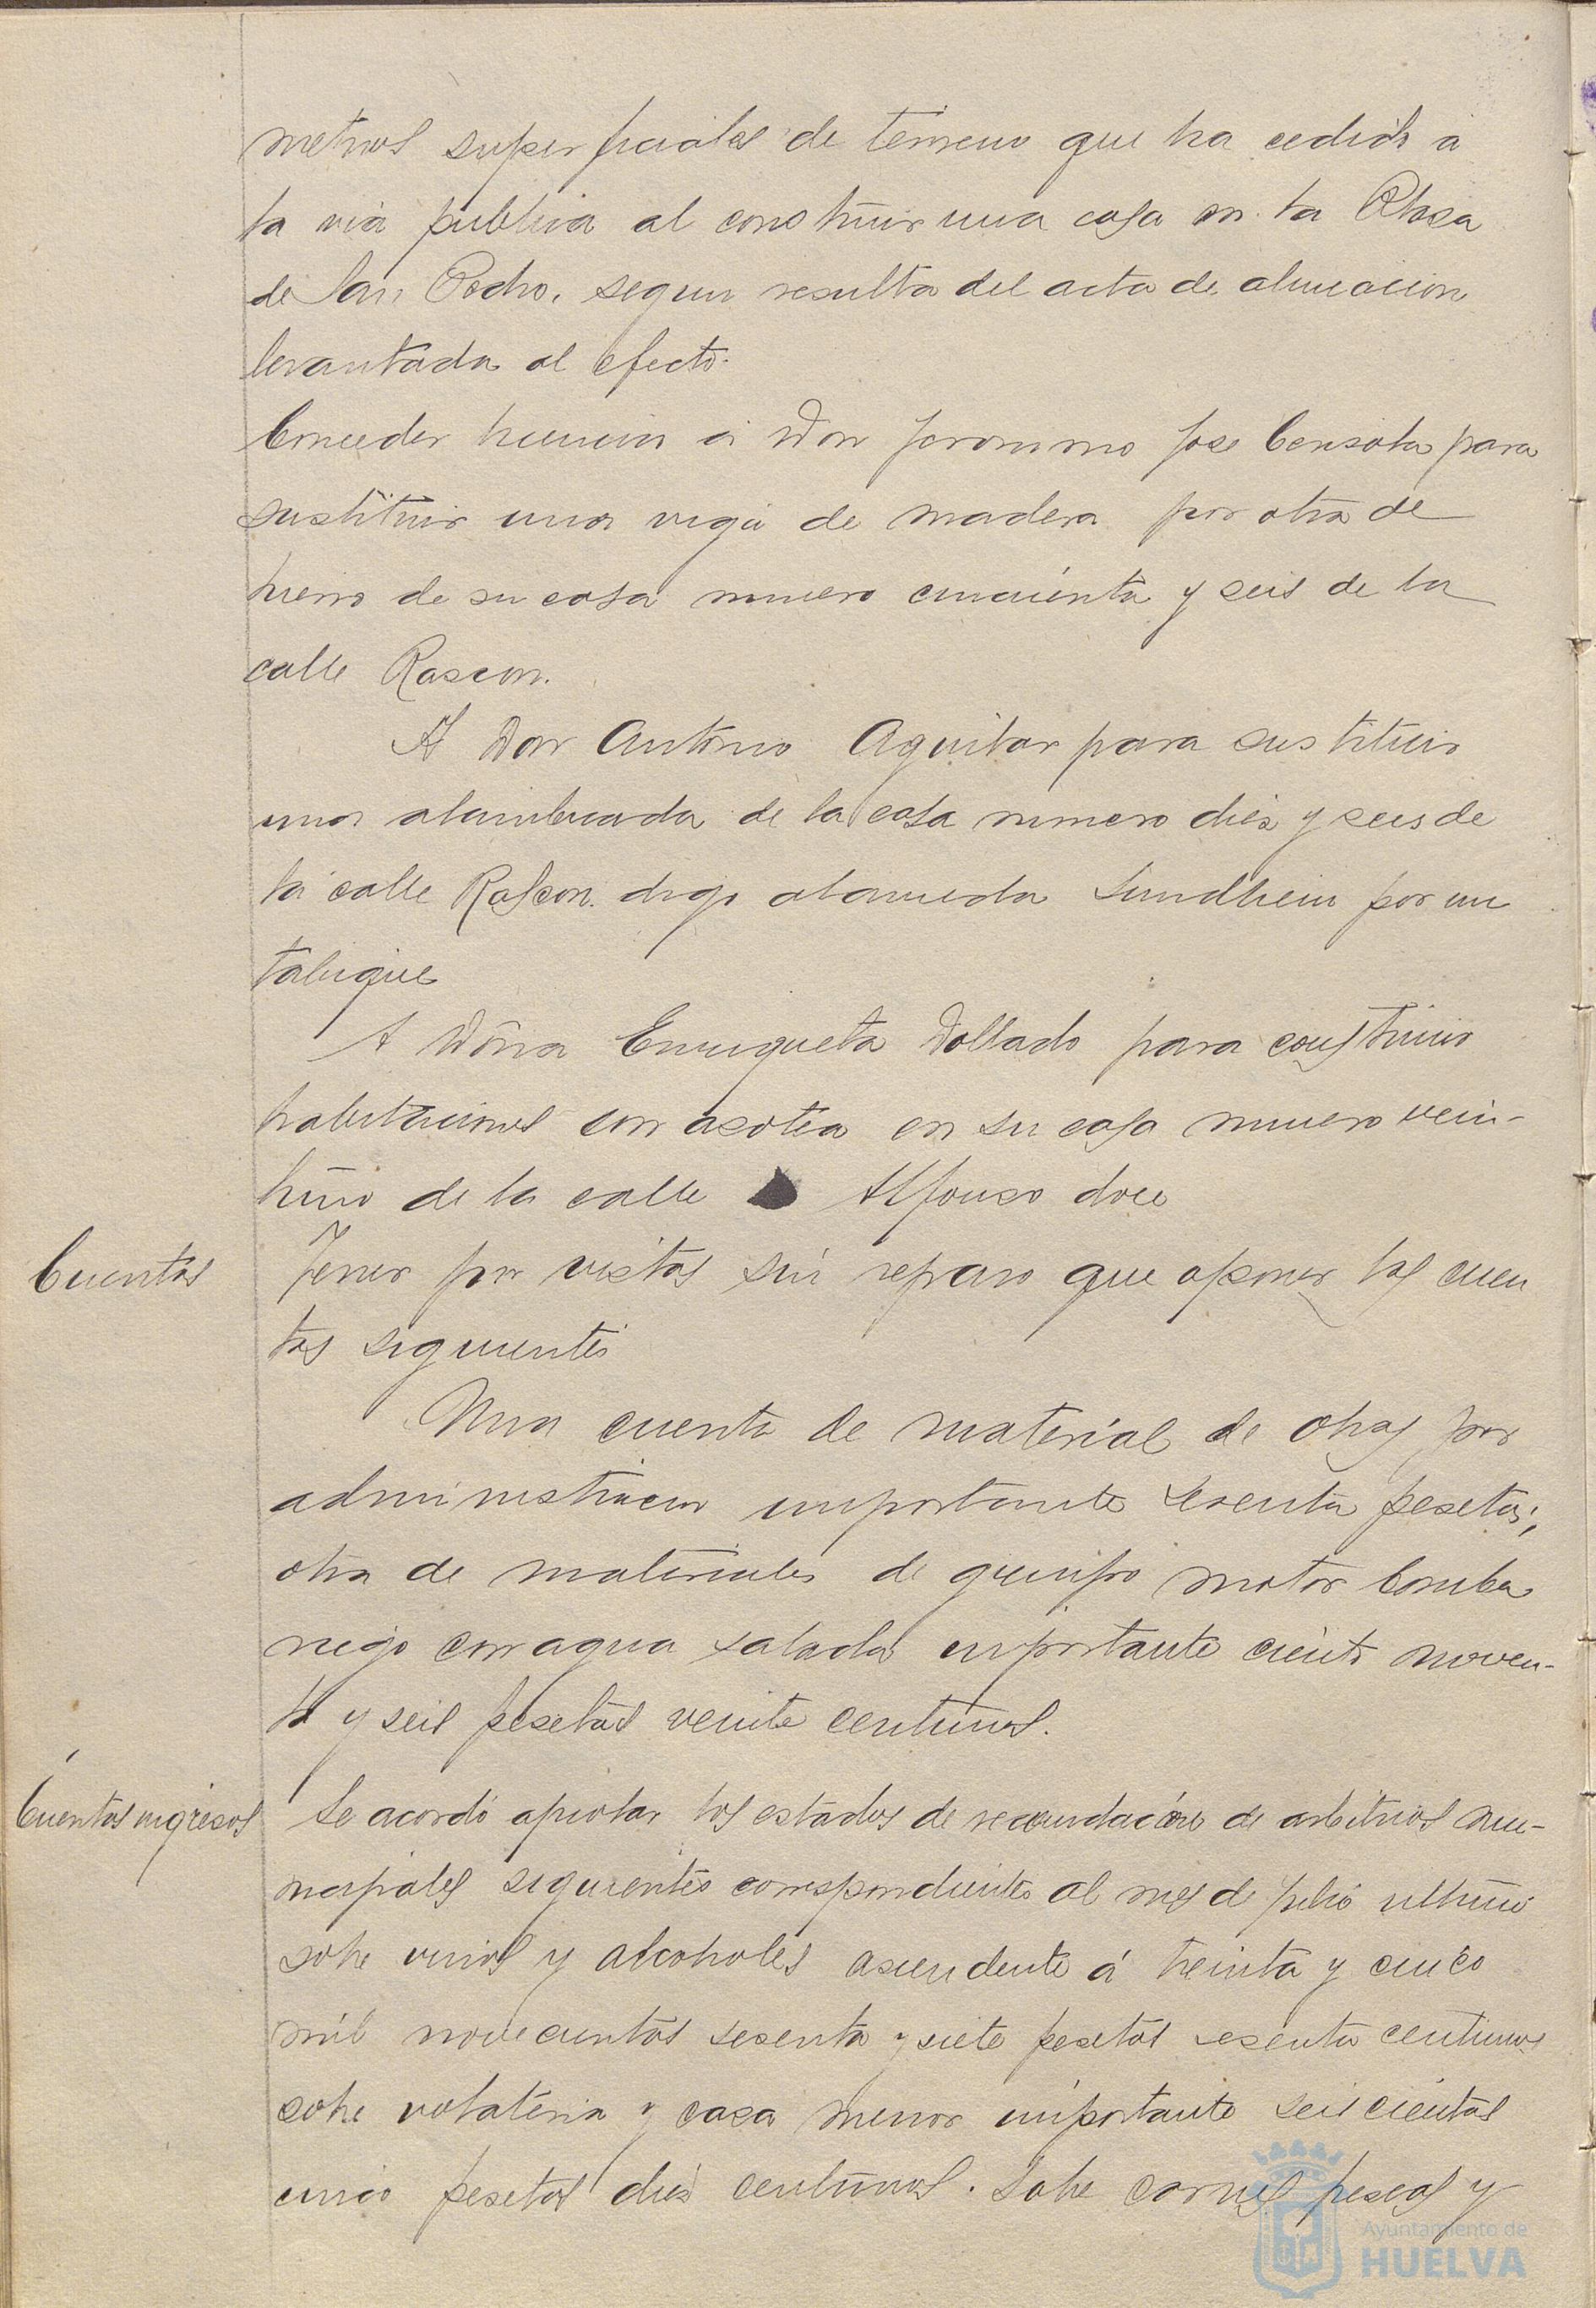 metros superficiales de terreno que ha cedido á
la via publica al construir una casa en la Plaza
de San Pedro, segun resulta del acta de alineacion
levantada al efecto.
Conceder licencia á Don Jeronimo Jose para
sustituir una viga de madera por otra de
hierro de su casa numero cincuenta y seis de la
calle Rascon.
A Don Antonio Aguilar para sustituir
una alambrada de la casa numero diez y seis de
la calle Rascon. digo alameda Sundheim por un
tabique
A Doña Enriqueta Dollado para construir
habitaciones con azotea en su casa numero vein-
tiuno de la calle Alfonso doce
Cuentas
Tener por vistas sin reparo que oponer las cuen
tas siguientes
Una cuenta de material de obras por
administracion importante sesenta pesetas;
otra de materiales de grupo motor bomba
riego con agua salada importante ciento noven-
ta y seis pesetas veinte centimos.
Cuentas ingresos
Se acordó aprobar los estados de recaudación de arbitrios mu-
nicipales siguientes correspondientes al mes de julio ultimo
sobre vinos y alcoholes ascendente á treinta y cinco
mil novecientas sesenta y siete pesetas sesenta centimos
sobre volateria y caza menor importante seiscientas
cinco pesetas diez centimos. Sobre carnes pescas y
Ayuntamiento de
HUELVA